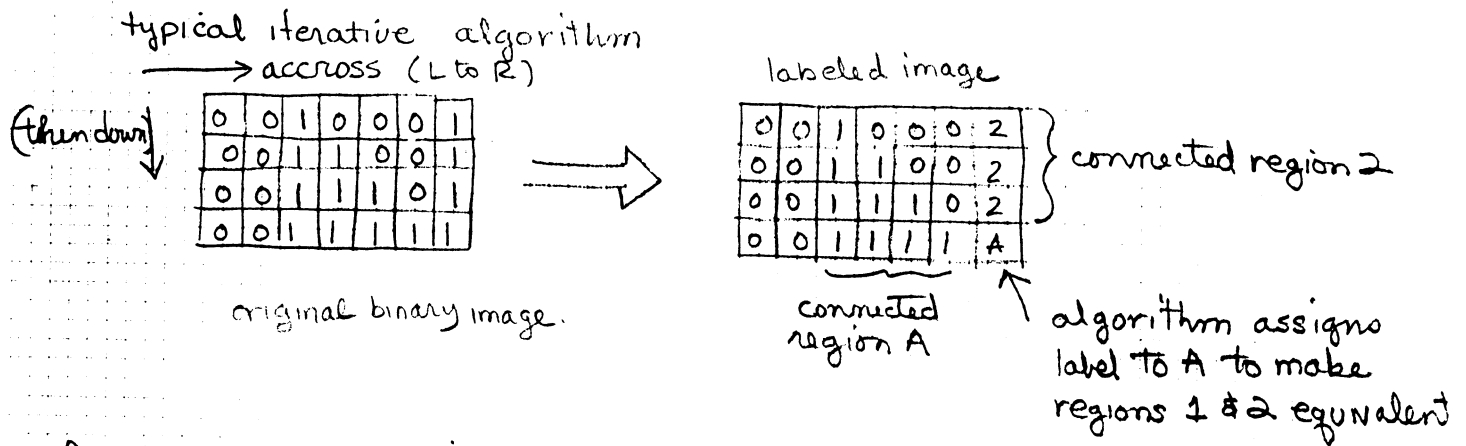 typical iterative algorithm
accross (L to R)
(then down)
0 0 1 0 0 0 1
0 0 1 1 0 0 1
0 0 1 1 1 0 1
0 0 1 1 1 1 1
original binary image.
labeled image
0 0 1 0 0 0 2
0 0 1 1 0 0 2
0 0 1 1 1 0 2
0 0 1 1 1 1 A
connected region 2
connected
region A
algorithm assigns
label to A to make
regions 1 & 2 equivalent